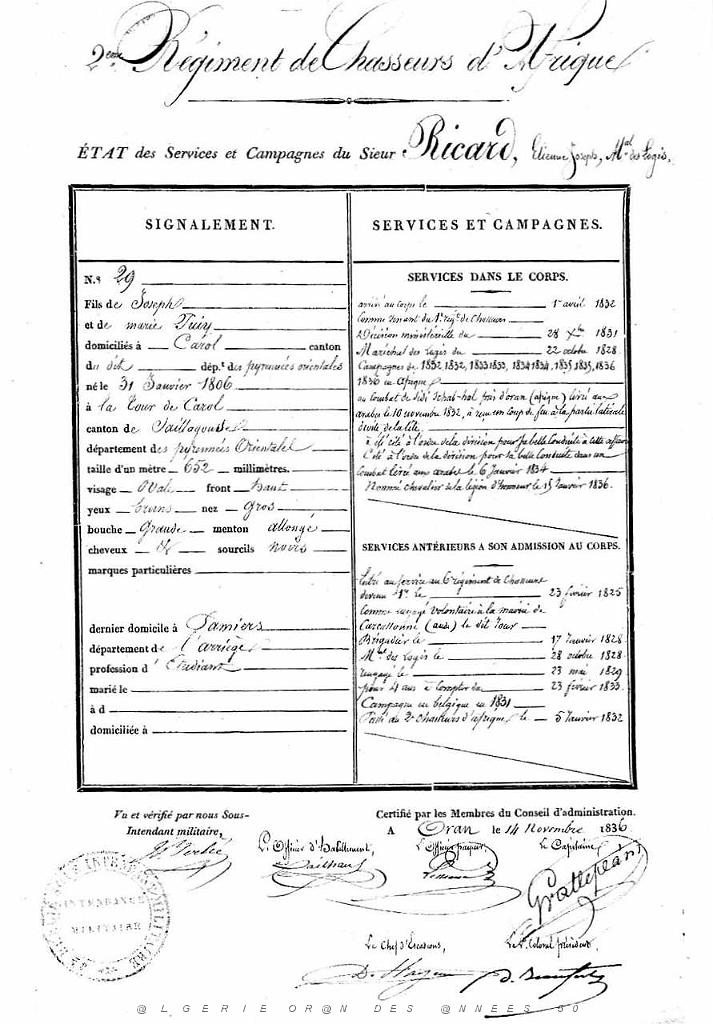 2eme Régiment de Chasseurs d'Afrique
ÉTAT des Services et Campagnes du Sieur Ricard, Etienne Joseph, Mal des Logis.
SIGNALEMENT.
N.º 29
Fils de Joseph
et de marie
domiciliés à Carol canton
du dit dép.t des pyrennées orientales
né le 31 Janvier 1806
à la Tour de Carol
canton de Saillagouse
département des pyrennées Orientales
taille d'un mètre 652 millimètres.
visage Ovale front haut
yeux bruns nez Gros
bouche Grande menton allongé
cheveux sourcils noirs
marques particulières
dernier domicile à Pamiers
département de l'arriège
profession d'Etudiant
marié le
à d
domiciliée à
SERVICES ET CAMPAGNES.
SERVICES DANS LE CORPS.
arrivé au corps le 1er avril 1832
Comme venant du 1er régt de Chasseurs
Décision ministérielle du 28 Xbre 1831
Maréchal des Logis du 22 octobre 1828
Campagnes de 1832, 1832, 1833 1833, 1834 1834, 1835 1835, 1836
1836 en Afrique
au Combat de Sidi près d'oran (afrique) livré aux
arabes le 10 novembre 1832, a reçu un coup de feu à la partie latérale
droite de la tête.
a été cité à l'ordre de la division pour sa belle Conduite à cette affaire
Cité à l'ordre de la division pour sa belle Conduite dans un
Combat livré aux arabes le 6 Janvier 1834
Nommé Chevalier de la légion d'honneur le 15 Janvier 1836.
SERVICES ANTÉRIEURS A SON ADMISSION AU CORPS.
Entré au Service au 6 régiment de Chasseurs
devenu 1er le 23 février 1825
Comme engagé Volontaire à la mairie de
Carcassonne (aude) le dit Jour
Brigadier le 17 Janvier 1828
Mal des Logis le 28 octobre 1828
rengagé le 23 mai 1829
pour 4 ans à Compter du 23 février 1833
Campagne en belgique en 1831
Passé au 2e Chasseurs d'afrique le 5 Janvier 1832
Vu et vérifié par nous Sous-
Intendant militaire,
Certifié par les Membres du Conseil d'administration.
A Oran le 14 Novembre 1836
L'Officier d'habillement,
L'Officier payeur,
Le Capitaine,
Grattepain
INTENDANCE
MILITAIRE
Le Chef d'Escadrons,
Le Lt Colonel président,
@LGERIE OR@N DES @NNEES 50